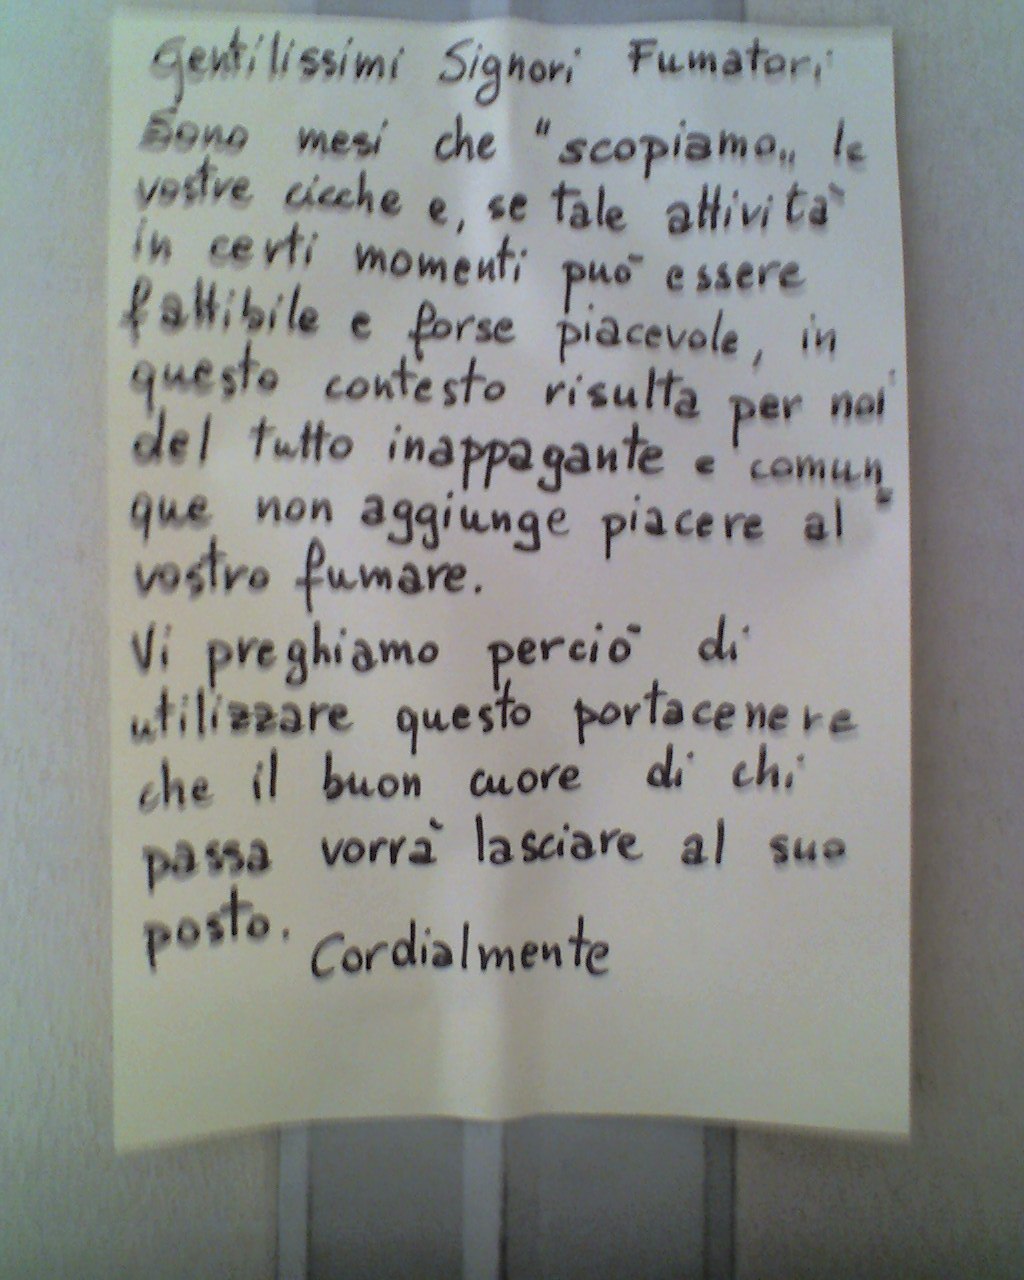 Gentilissimi Signori Fumatori
Sono mesi che "scopiamo„ le
vostre cicche e, se tale attività
in certi momenti può essere
fattibile e forse piacevole, in
questo contesto risulta per noi
del tutto inappagante e comun
que non aggiunge piacere al
vostro fumare.
Vi preghiamo perciò di
utilizzare questo portacenere
che il buon cuore di chi
passa vorrà lasciare al suo
posto.
Cordialmente